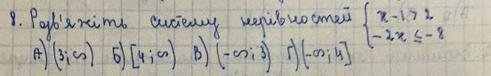 8. Розв'яжіть систему нерівностей { x - 1 > 2
-2x ≤ -8
А) (3; ∞) Б) [4; ∞) В) (-∞; 3) Г) (-∞; 4]